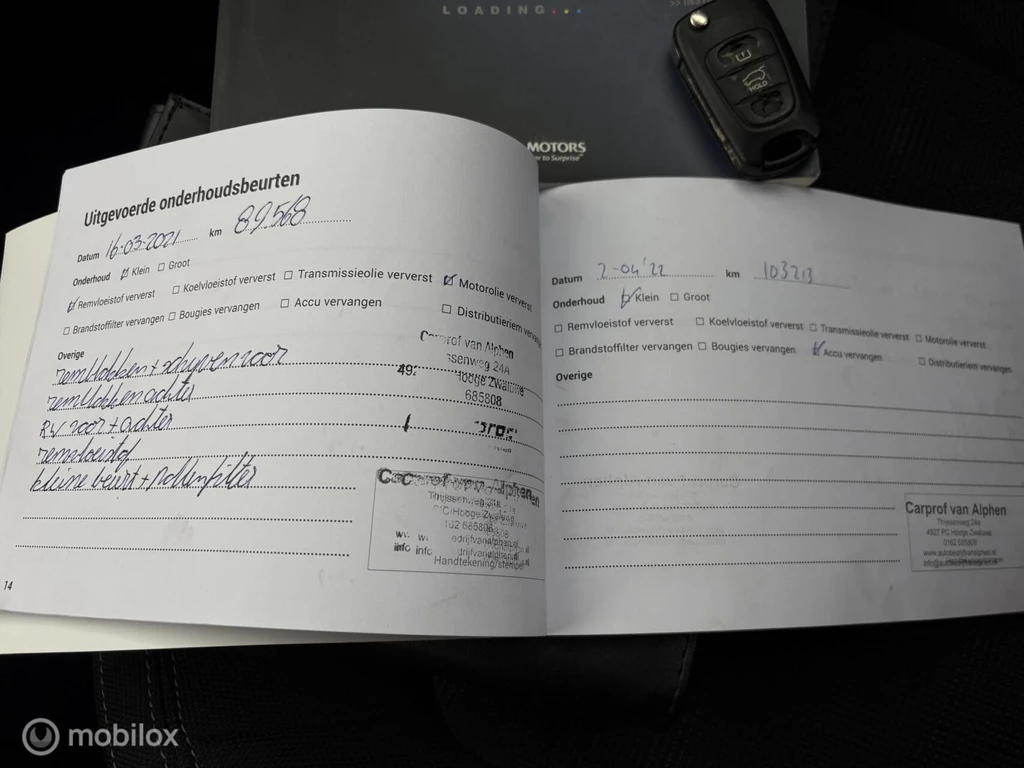 LOADING...
HOLD
MOTORS
er to Surprise
Uitgevoerde onderhoudsbeurten
Datum 16-03-2021 km 89.568
Onderhoud Klein Groot
Remvloeistof ververst Koelvloeistof ververst Transmissieolie ververst Motorolie ververst
Brandstoffilter vervangen Bougies vervangen Accu vervangen Distributieriem vervan
Overige
remblokken + schijven voor
remblokken achter
RW voor + achter
remvloeistof
kleine beurt + Pollenfilter
Carprof van Alphen
ssenweg 24A
492 Hooge Zwaluwe
685808
Handtekening/stempel
14
Datum 2-04'22 km 103213
Onderhoud Klein Groot
Remvloeistof ververst Koelvloeistof ververst Transmissieolie ververst Motorolie ververst
Brandstoffilter vervangen Bougies vervangen Accu vervangen Distributieriem vervangen
Overige
Carprof van Alphen
Thijssenweg 24a
4927 PC Hooge Zwaluwe
0162 685808
www.autobedrijfvanalphen.nl
info@autobedrijfvanalphen.nl
mobilox